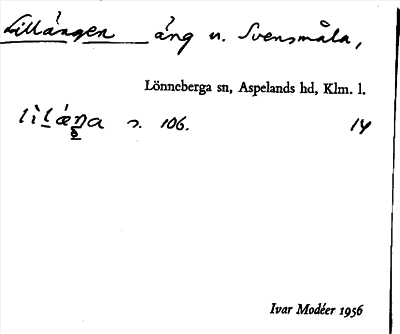 Lillängen äng u. Svensmåla,
Lönneberga sn, Aspelands hd, Klm. l.
s. 106. 14
Ivar Modéer 1956